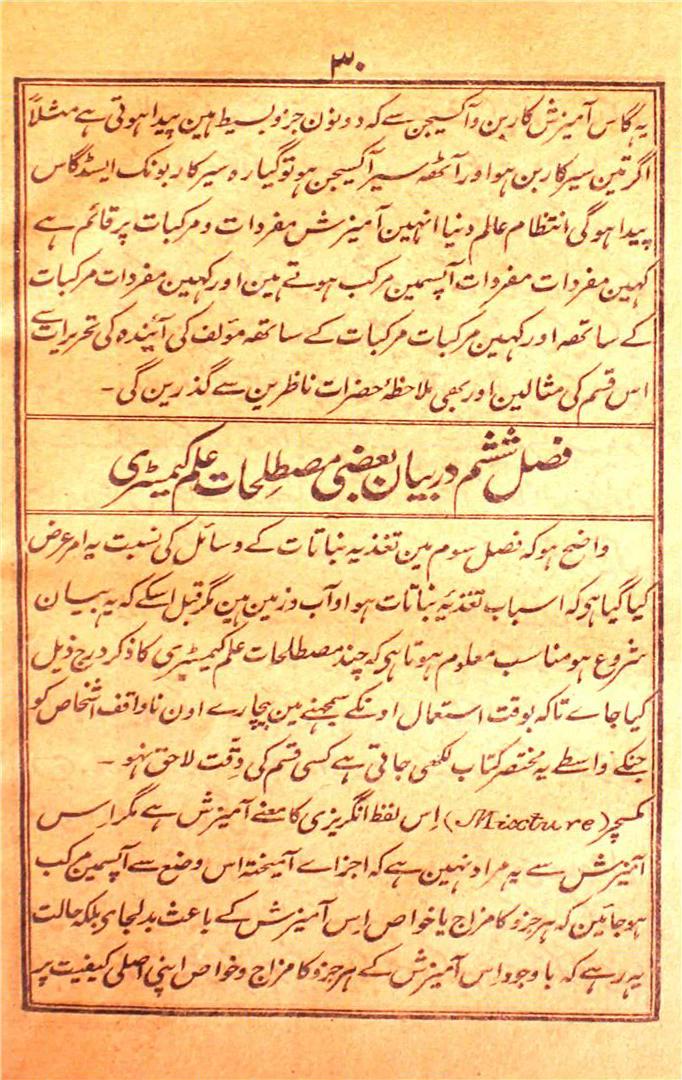 ۳۰
یہ گاس آمیزش کاربن و آکسیجن سے کہ دونون جزو بسیط ہین پیدا ہوتی ہے مثلاً
اگر تین سیر کاربن ہو اور آٹھہ سیر آکسیجن ہو تو گیارہ سیر کاربونک ایسڈ گاس
پیدا ہوگی انتظام عالم دنیا انہین آمیزش مفردات و مرکبات پر قائم ہے
کہین مفردات مفردات آپسمین مرکب ہوتے ہین اور کہین مفردات مرکبات
کے ساتھہ اور کہین مرکبات مرکبات کے ساتھہ مؤلف کی آئیندہ کی تحریرات سے
اس قسم کی مثالین اور بھی ملاحظۂ حضرات ناظرین سے گذرین گی ۔
فصل ششم در بیان بعضی مصطلحات علم کیمیسٹری
واضح ہو کہ فصل سوم مین تغذیہ نباتات کے وسائل کی نسبت یہ امر عرض
کیا گیا ہو کہ اسباب تغذیۂ نباتات ہوا و آب و زمین ہین مگر قبل اسکے کہ یہ بیان
شروع ہو مناسب معلوم ہوتا ہی کہ چند مصطلحات علم کیمیسٹری کا ذکر درج ذیل
کیا جاے تاکہ بوقت استعمال اونکے سمجھنے مین بیچارے اون ناواقف اشخاص کو
جنکے واسطے یہ مختصر کتاب لکھی جاتی ہے کسی قسم کی دقّت لاحق نہو ۔
مکسچر (Mixture) اِس لفظ انگریزی کا معنے آمیزش ہے مگر اِس
آمیزش سے یہ مراد نہین ہے کہ اجزاے آمیختہ اس وضع سے آپسمین مرکب
ہو جائین کہ ہر جزو کا مزاج یا خواص اِس آمیزش کے باعث بدلجاے بلکہ حالت
یہ رہے کہ باوجود اِس آمیزش کے ہر جزو کا مزاج و خواص اپنی اصلی کیفیت پر